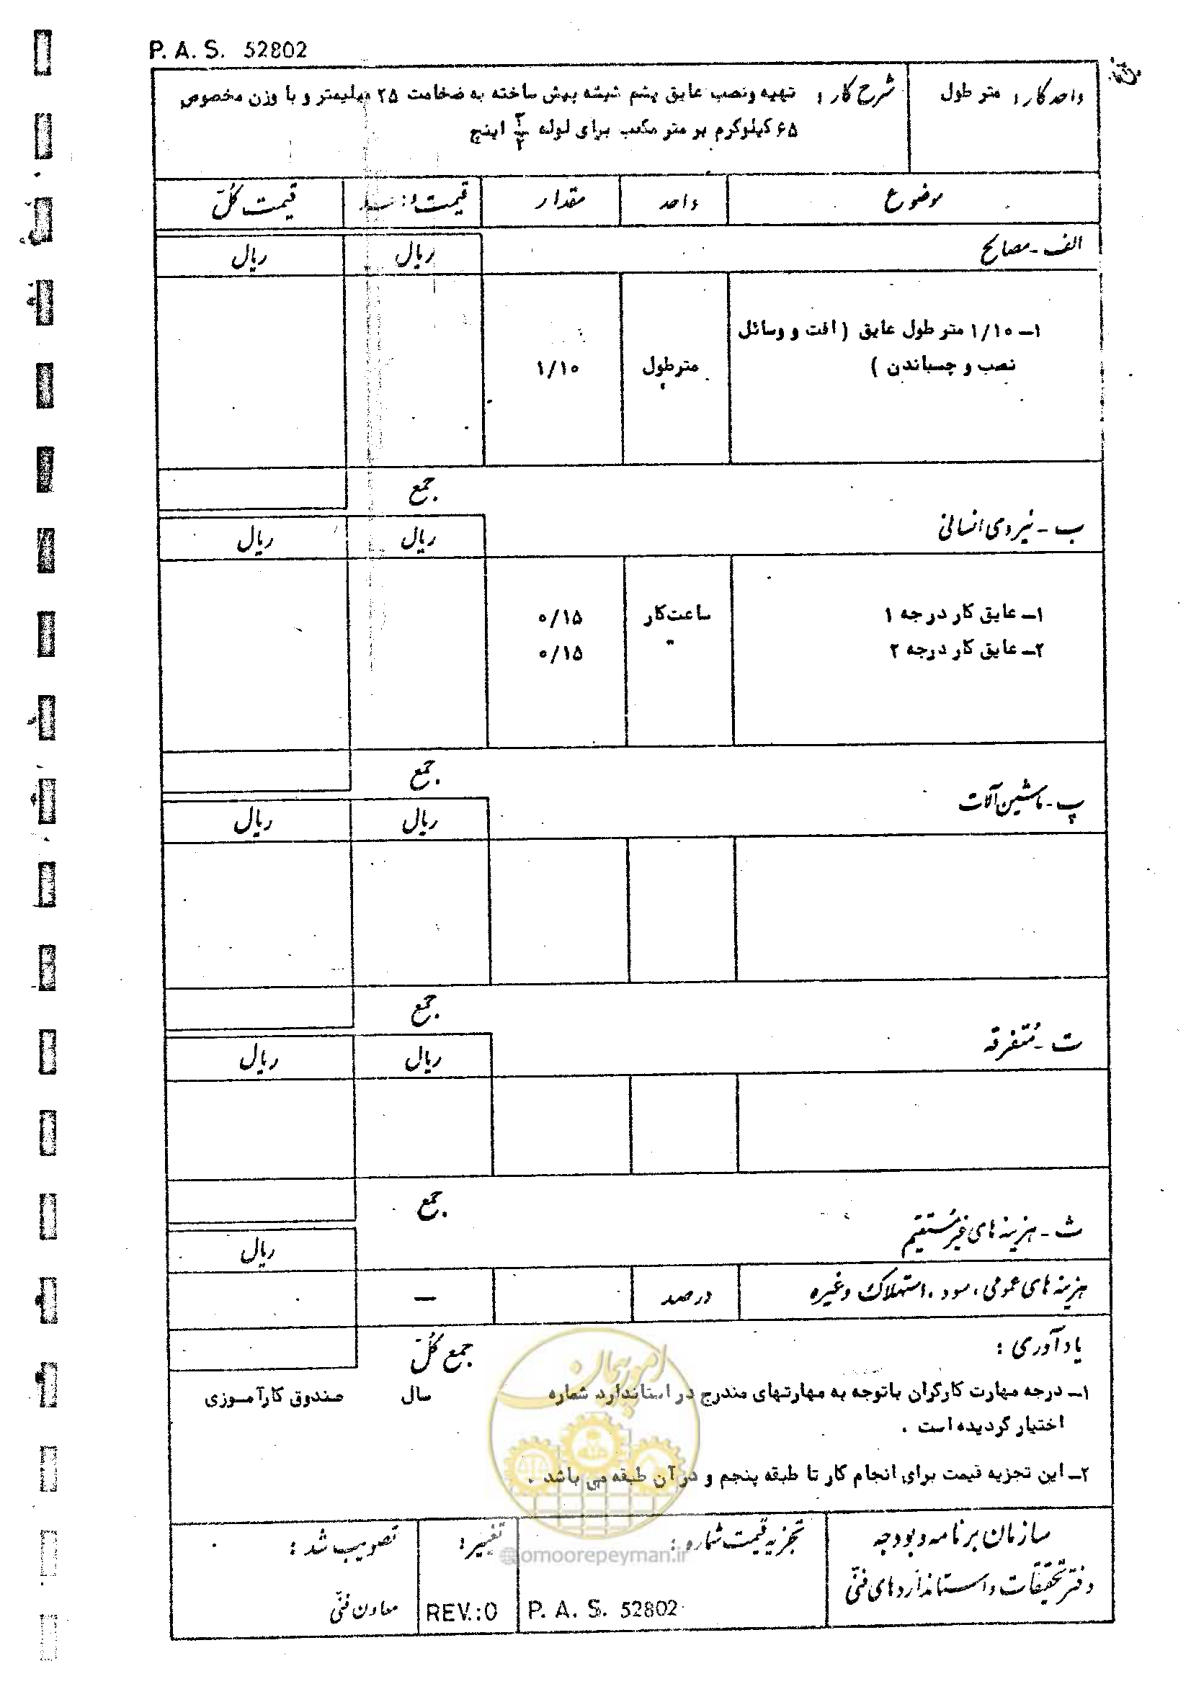 P. A. S. 52802
واحد کار: متر طول
شرح کار: تهیه ونصب عایق پشم شیشه پیش ساخته به ضخامت ۲۵ میلیمتر و با وزن مخصوص
۶۵ کیلوگرم بر متر مکعب برای لوله اینچ
موضوع واحد مقدار قیمت قیمت کل
الف - مصالح ریال ریال
۱ـ ۱/۱۰ متر طول عایق ( افت و وسائل
نصب و چسباندن ) مترطول ۱/۱۰
جمع
ب - نیروی انسانی ریال ریال
۱ـ عایق کار درجه ۱ ساعت‌کار ۰/۱۵
۲ـ عایق کار درجه ۲ " ۰/۱۵
جمع
پ - ماشین‌آلات ریال ریال
جمع
ت - متفرقه ریال ریال
جمع
ث - هزینه های غیرمستقیم ریال
هزینه های عمومی ، سود ، استهلاک وغیره درصد —
یادآوری : جمع کل
۱ـ درجه مهارت کارگران باتوجه به مهارتهای مندرج در استاندارد شماره سال صندوق کارآموزی
اختیار گردیده است .
۲ـ این تجزیه قیمت برای انجام کار تا طبقه پنجم و درآن طبقه می باشد .
امور پیمان
@omoorepeyman.ir
سازمان برنامه و بودجه تجزیه قیمت شماره : تغییر : تصویب شد :
دفتر تحقیقات و استانداردهای فنی P. A. S. 52802 REV.:0 معاون فنی